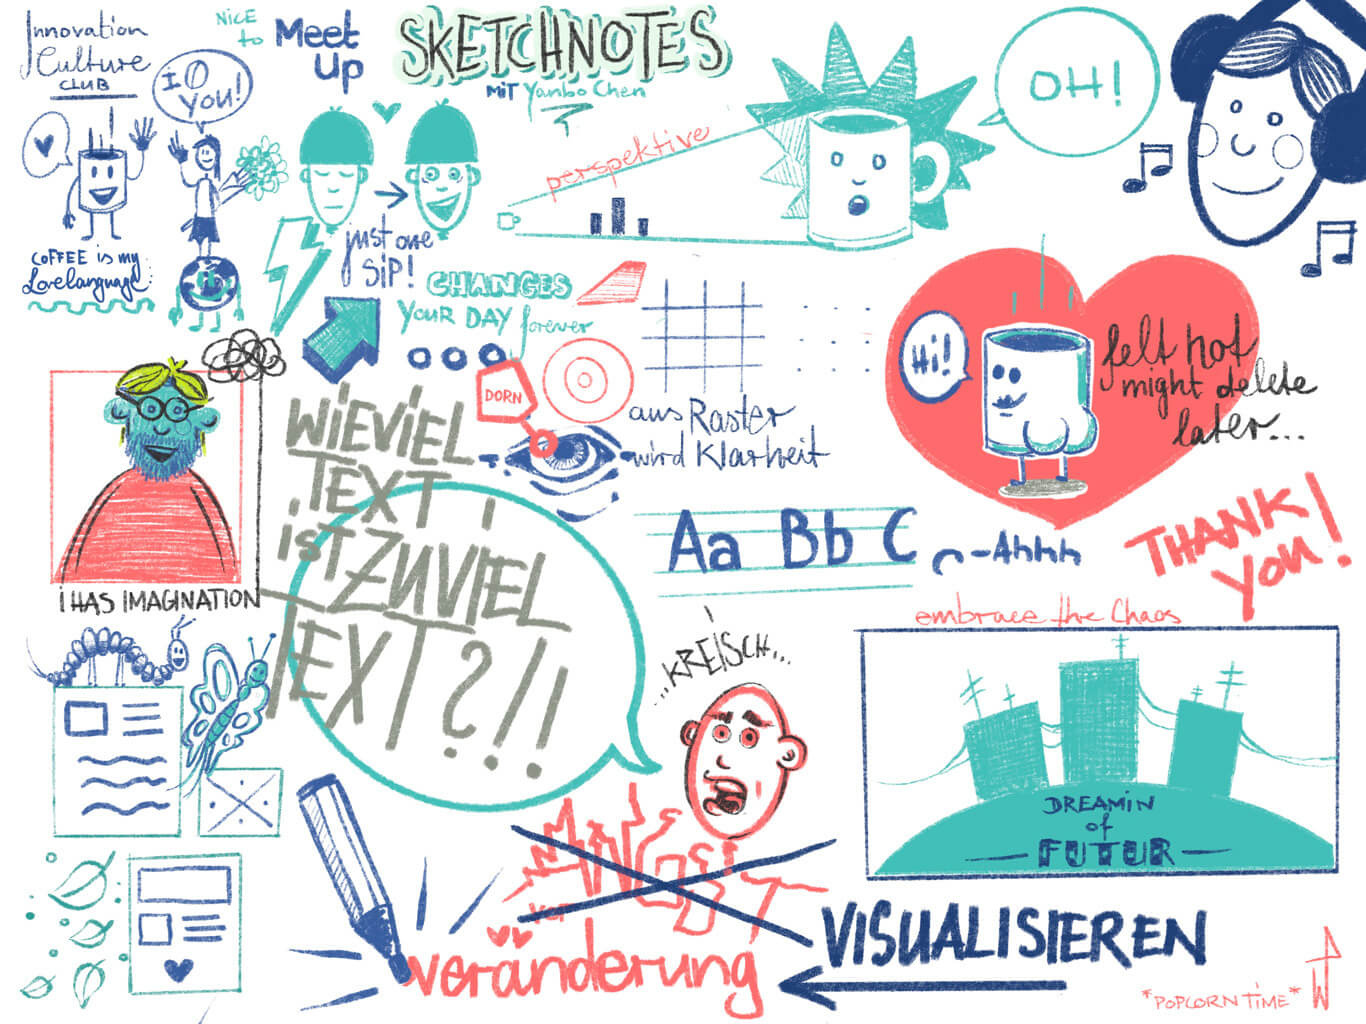 Innovation
Culture
CLUB
NiCE
to
Meet
Up
SKETCHNOTES
MiT Yanbo Chen
I O
you!
COFFEE is my
Lovelanguage
just one
SiP!
CHANGES
YOUR DAY forever
perspektive
OH!
DORN
aus Raster
wird Klarheit
Hi!
felt hot
might delete
later...
WiEViEL
TEXT
isT ZUViEL
TEXT?!!
i HAS IMAGINATION
Aa Bb C
-Ahhh
THANK
You!
embrace the Chaos
..KREISCH...
DREAMIN
of
FUTUR
VISUALISIEREN
veränderung
*POPCORN TIME*